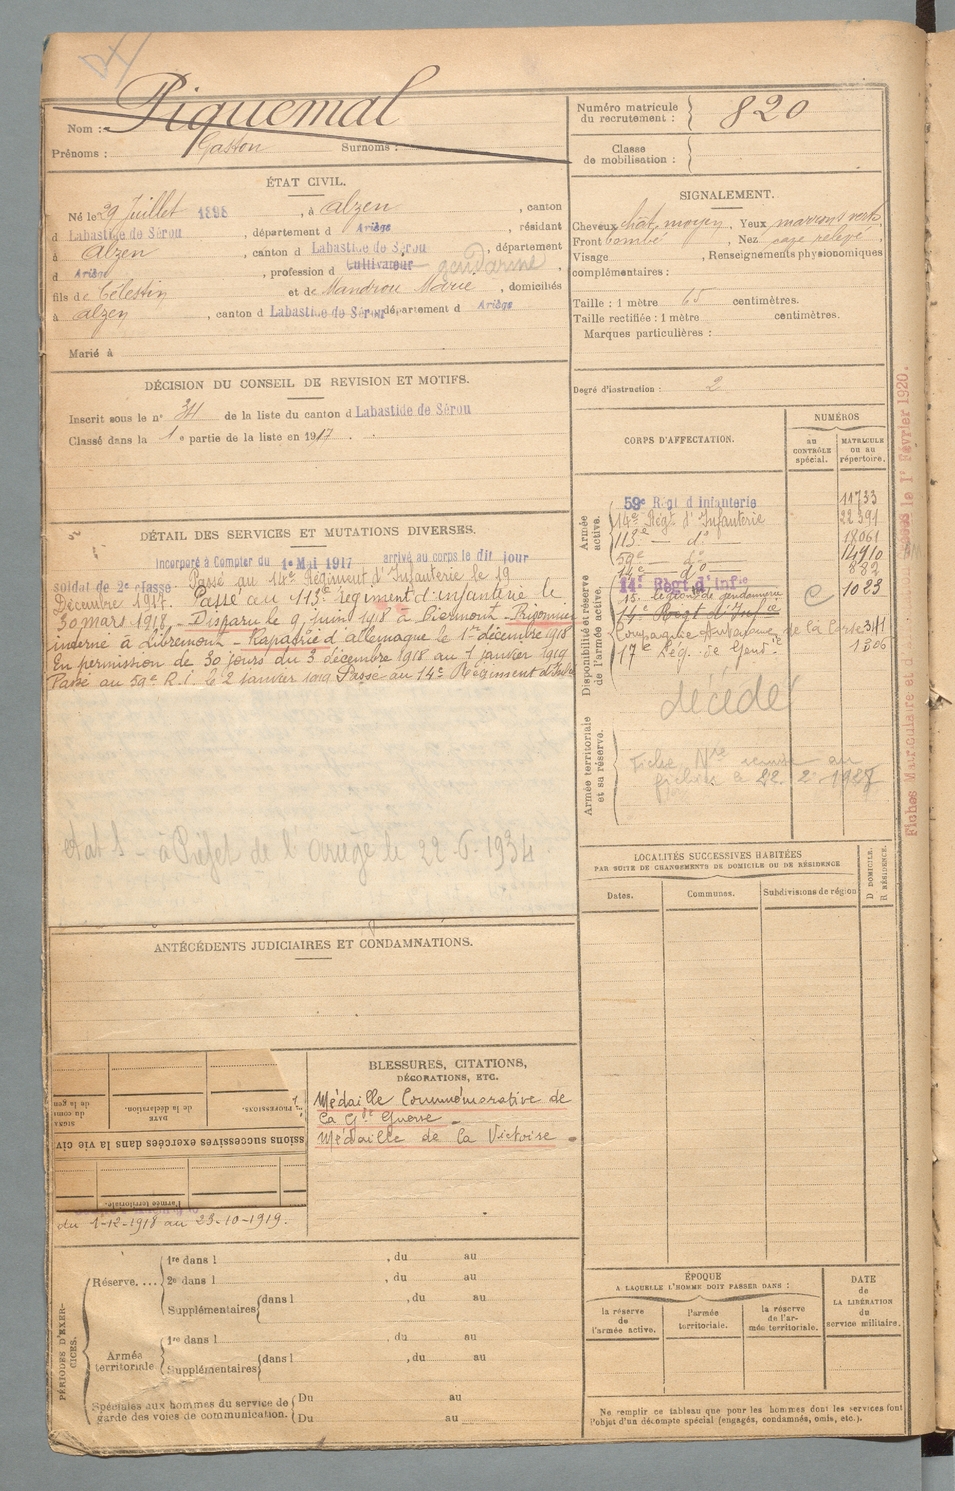 Nom : Piquemal
Prénoms : Gaston Surnoms :
Numéro matricule du recrutement : 820
Classe de mobilisation :
ÉTAT CIVIL.
Né le 29 Juillet 1898, à Alzen, canton
d Labastide de Sérou, département d Ariège, résidant
à Alzen, canton d Labastide de Sérou, département
d Ariège, profession d Cultivateur gendarme
fils de Célestin et de Mandrou Marie, domiciliés
à Alzen, canton d Labastide de Sérou département d Ariège
Marié à
SIGNALEMENT.
Cheveux chât. moyen, Yeux marrons verts
Front bombé, Nez relevé,
Visage , Renseignements physionomiques
complémentaires :
Taille : 1 mètre 65 centimètres.
Taille rectifiée : 1 mètre centimètres.
Marques particulières :
Degré d'instruction : 2
DÉCISION DU CONSEIL DE REVISION ET MOTIFS.
Inscrit sous le n° de la liste du canton d Labastide de Sérou
Classé dans la 1e partie de la liste en 1917.
DÉTAIL DES SERVICES ET MUTATIONS DIVERSES.
Incorporé à Compter du 1e Mai 1917 arrivé au corps le dit jour
soldat de 2e classe Passé au 14e Régiment d'Infanterie le 19
Décembre 1917. Passé au 113e Régiment d'infanterie le
30 mars 1918. Disparu le 9 juin 1918 à Piermont. Prisonnier
interné à Libremont. Rapatrié d'allemagne le 1er décembre 1918
En permission de 30 jours du 3 décembre 1918 au 1 janvier 1919
Passé au 59e R.I. le 2 janvier 1919 Passé au 14e Régiment d'Infie
à Préfet de l'ariège le 22-6-1934
CORPS D'AFFECTATION.
NUMÉROS
au CONTRÔLE spécial.
MATRICULE ou au répertoire.
Armée active.
59e Régt d Infanterie 11733
14e Régt d'Infanterie 22391
113e — do — 18061
59e do 14910
14e — do — 882
Disponibilité et réserve de l'armée active.
14e Régt d'Infie
15e légion de gendarmerie C 1023
14e Régt d'Infie
Compagnie Autonome de la Corse
17e Lég. de Gend.ie 1306
décédé
Armée territoriale et sa réserve.
Fiche Nle remise au
fichier le 22.2.
Fiches Matriculaire et de le 1r Février 1920.
LOCALITÉS SUCCESSIVES HABITÉES
PAR SUITE DE CHANGEMENTS DE DOMICILE OU DE RÉSIDENCE
D DOMICILE.
R RÉSIDENCE.
Dates. Communes. Subdivisions de région
ANTÉCÉDENTS JUDICIAIRES ET CONDAMNATIONS.
BLESSURES, CITATIONS,
DÉCORATIONS, ETC.
Médaille Commémorative de
la Gde Guerre.
Médaille de la Victoire.
PROFESSIONS.
DATE
de la déclaration.
ssions successives exercées dans la vie civ
l'armée territoriale.
du 1-12-1918 au 23-10-1919.
PÉRIODES D'EXERCICES.
Réserve....
1re dans l , du au
2e dans l , du au
Supplémentaires dans l , du au
Armée territoriale
1re dans l , du au
Supplémentaires dans l , du au
Spéciales aux hommes du service de
garde des voies de communication.
Du au
Du au
ÉPOQUE
A LAQUELLE L'HOMME DOIT PASSER DANS :
la réserve de l'armée active.
l'armée territoriale.
la réserve de l'armée territoriale.
DATE
de
LA LIBÉRATION
du
service militaire.
Ne remplir ce tableau que pour les hommes dont les services font
l'objet d'un décompte spécial (engagés, condamnés, omis, etc.).